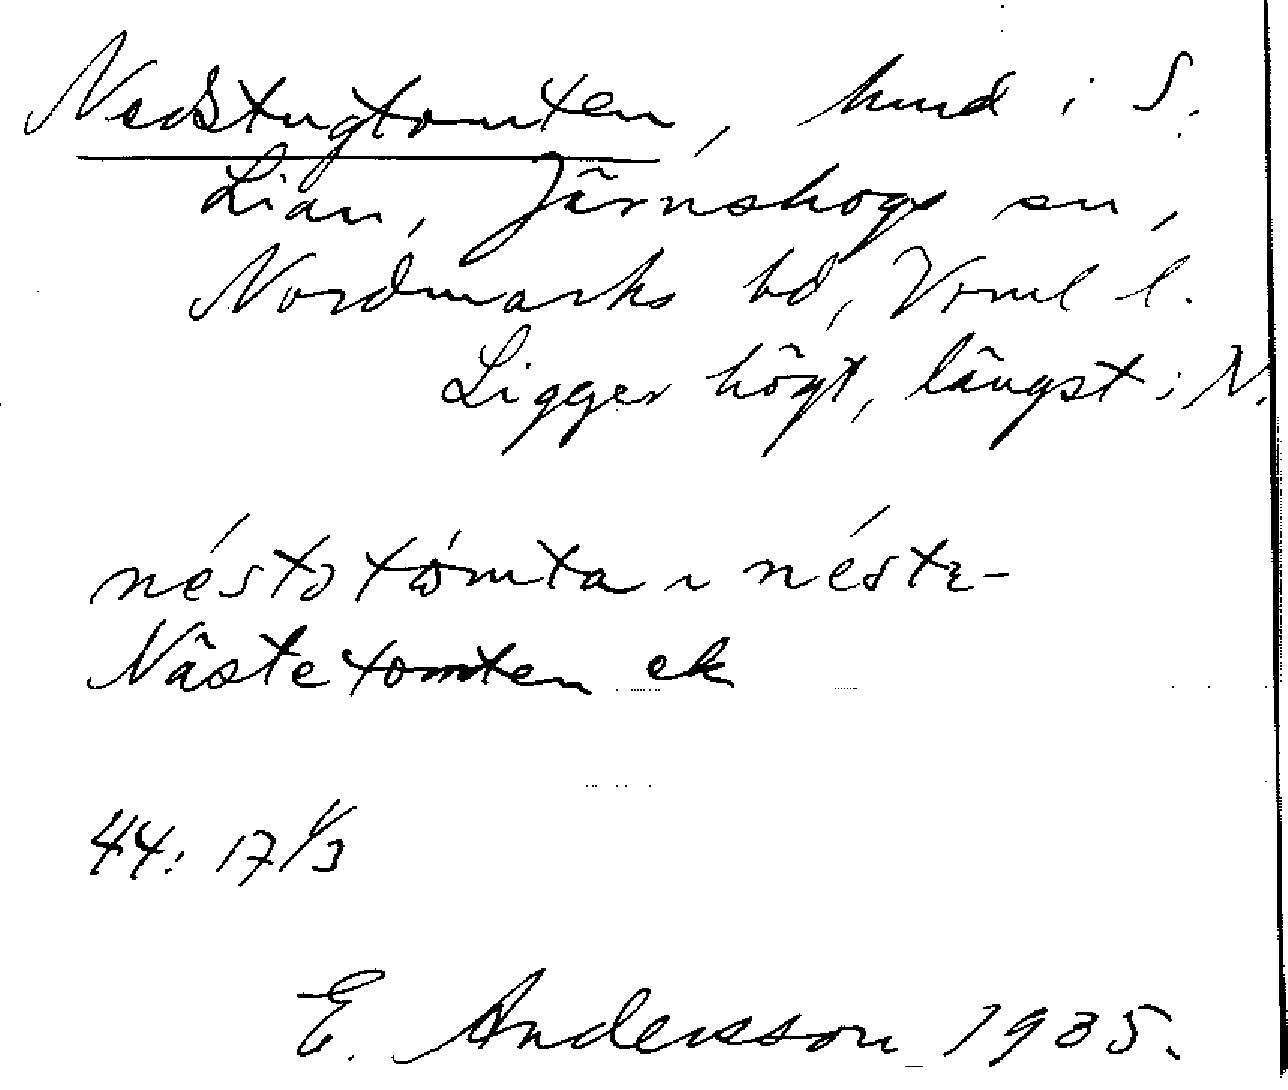 Nedstugtomten, hmd i S.
Lian, Järnskogs sn,
Nordmarks hd, Vrml l.
Ligger högt, längst i N.
néstətómta ~ néste-
Nästetomten ek
44: 17 1/3
E. Andersson 1935.